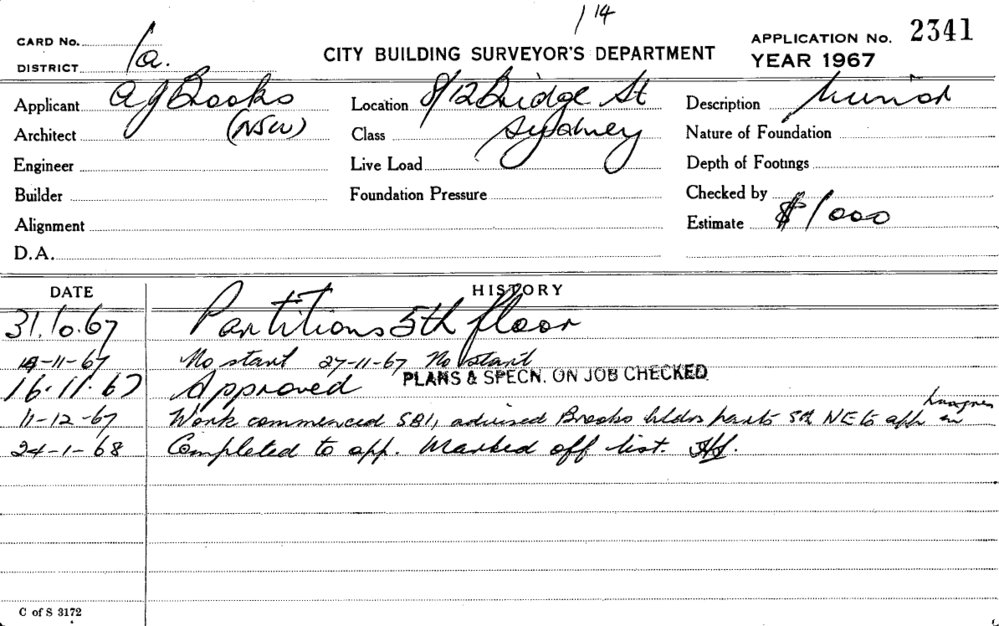 1/14
CARD No.
DISTRICT 1a.
CITY BUILDING SURVEYOR'S DEPARTMENT
APPLICATION No. 2341
YEAR 1967
Applicant A J Brooks
(NSW)
Architect
Engineer
Builder
Alignment
D.A.
Location 8/12 Bridge St
Sydney
Class
Live Load
Foundation Pressure
Description minor
Nature of Foundation
Depth of Footings
Checked by
Estimate $1000
DATE HISTORY
31.10.67 Partitions 5th floor
No start 27-11-67 No start
16.11.67 Approved PLANS & SPECN. ON JOB CHECKED
11-12-67 Work commenced SB1, advised Brooks bldrs 5th NE to app
24-1-68 Completed to app. Marked off list.
C of S 3172